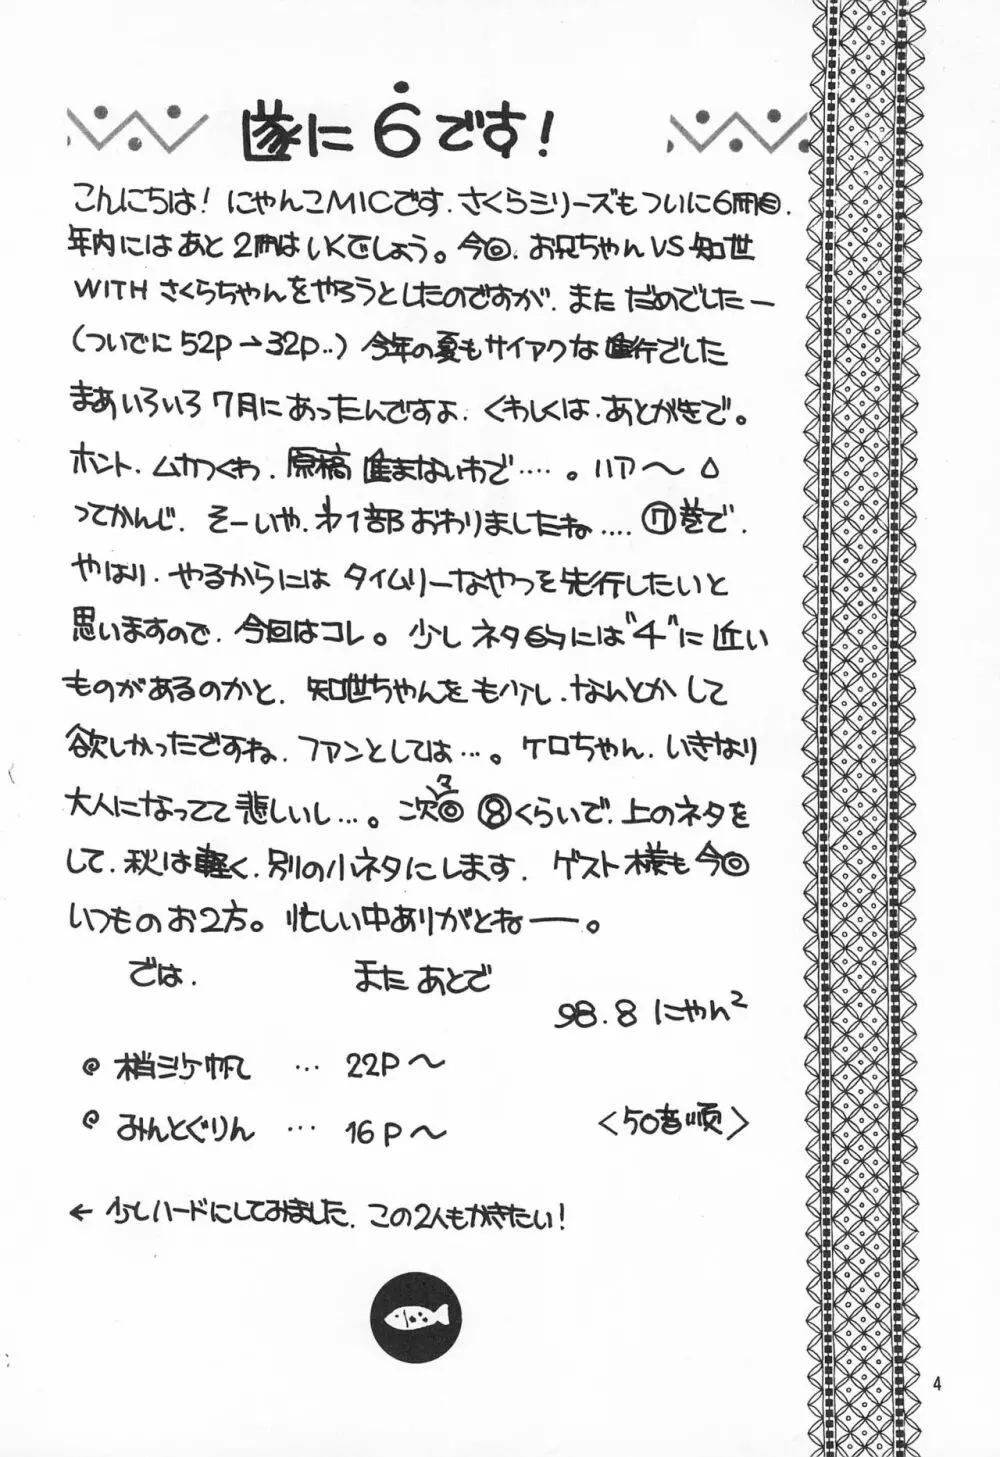 遂に6です!
こんにちは! にゃんこMICです.さくらシリーズもついに6冊目.
年内にはあと2冊はいくでしょう。今回.お兄ちゃんVS知世
WITHさくらちゃんをやろうとしたのですが.まただめでしたー
(ついでに52P→32P..)今年の夏もサイアクな進行でした
まあいろいろ7月にあったんですよ.くわしくは.あとがきで。
ホント.ムカつくわ.原稿進まないわで....。ハア〜
ってかんじ.そーいや.オ1部おわりましたね....⑪巻で.
やはり.やるからにはタイムリーなやつを先行したいと
思いますので.今回はコレ。少しネタ的には"4"に近い
ものがあるのかと.知世ちゃんをも少し.なんとかして
欲しかったですね.ファンとしては...。ケロちゃん.いきなり
大人になってて悲しいし...。次々回⑧くらいで.上のネタを
して.秋は軽く.別の小ネタにします.ゲスト様も今回
いつものお2方。忙しい中ありがとねー。
では. またあとで
98.8 にゃん²
梢ミケ帆 ... 22P〜
みんとぐりん ... 16P〜 <50音順>
← 少しハードにしてみました.この2人もかきたい!
4